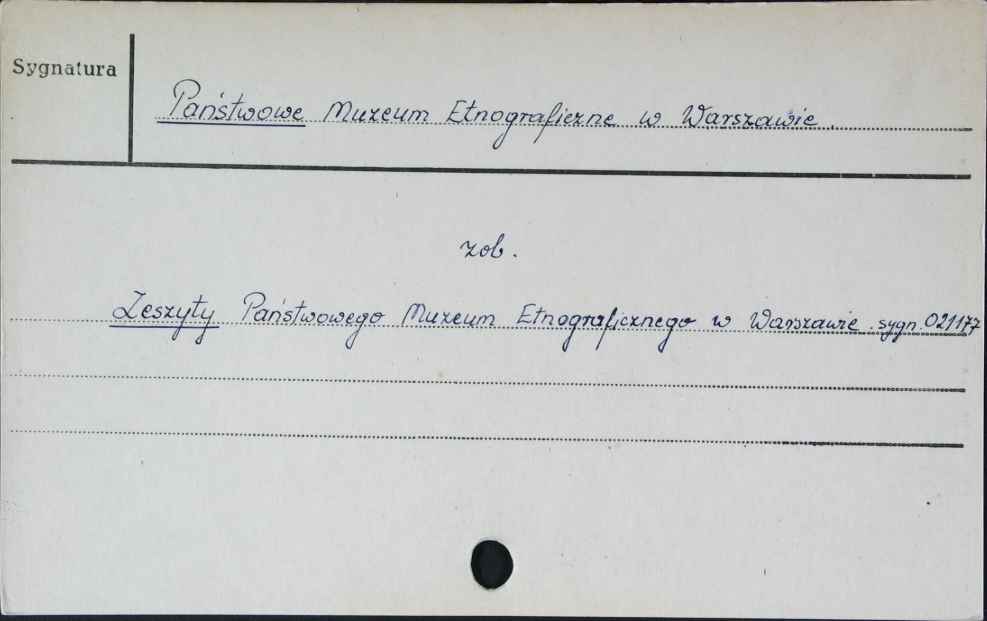 Sygnatura
Państwowe Muzeum Etnograficzne w Warszawie.
zob.
Zeszyty Państwowego Muzeum Etnograficznego w Warszawie. sygn. 021177